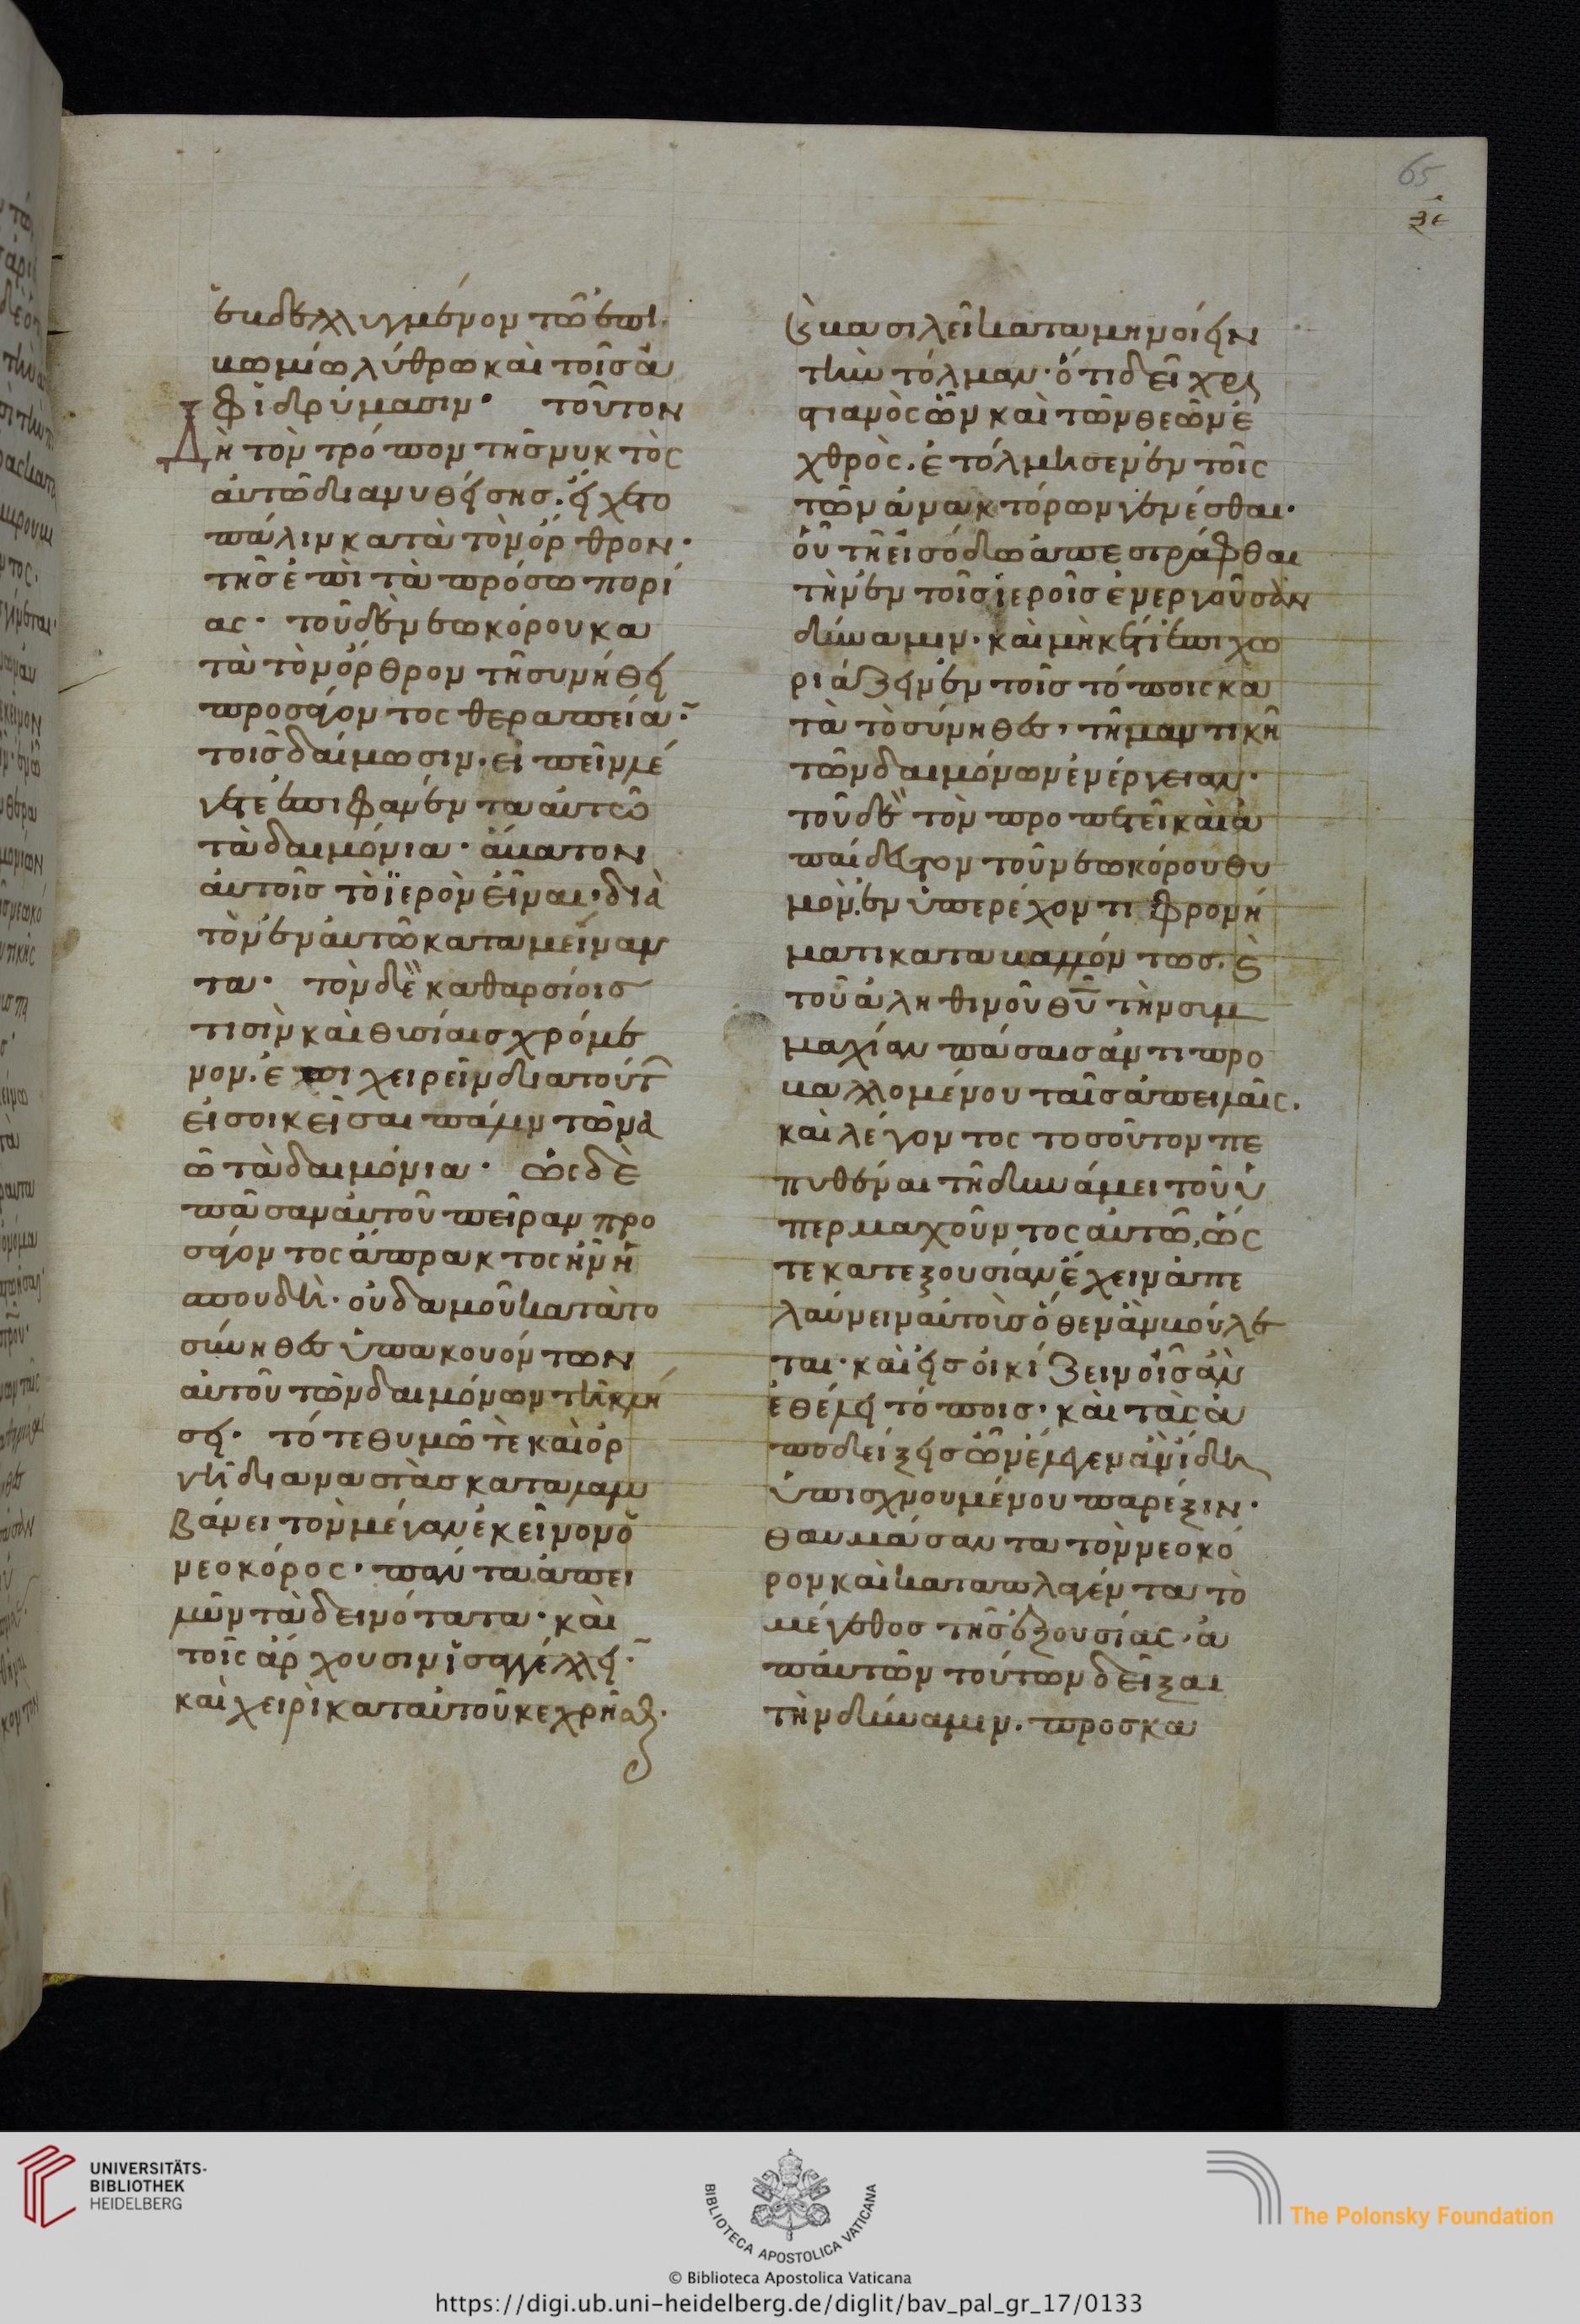 ἐβδελλυγμένον τῶ ἐπι
βωμίω λύθρω καὶ τοῖς ἀ
φιδρύμασιν· τοῦτον
Δὴ τὸν τρόπον τῆς νυκτὸς
αὐτῶ διανυθείσης· εἴχετο
πάλιν κατὰ τὸν ὄρθρον·
τῆς ἐπὶ τὰ πρόσω πορί
ας· τοῦ δὲ νεωκόρου κα
τὰ τὸν ὄρθρον τῆ συνήθει
προσιόντος θεραπεία·
τοῖς δαίμωσιν· εἰπεῖν λέ
γεται ἐπιφανέντα αὐτῶ
τὰ δαιμόνια· ἄβατον
αὐτοῖς τὸ ϊερὸν εἶναι· διὰ
τὸν ἐν αὐτῶ καταμείναν
τα· τὸν δὲ καθαρσίοις
τισὶν καὶ θυσίαις χρόμε
νον· ἐπιχειρεῖν διατούτ
εἰσοικεῖσαι πάλιν τῶ να
ῶ τὰ δαιμόνια· ὡς δὲ
πᾶσαν αὐτοῦ πεῖραν προ
σάγοντος ἄπρακτος ἦν ἡ
σπουδὴ· οὐδαμοῦ κατὰ το
σύνηθες ὑπακουόντων
αὐτοῦ τῶν δαιμόνων τῆ κλή
σει· τότε θυμῶ τὲ καὶ ὀρ
γῆ διαναστὰς καταλαμ
βάνει τὸν μέγαν ἐκεῖνον ὁ
νεοκόρος· πάντα ἀπει
λῶν τὰ δεινότατα· καὶ
τοῖς ἄρχουσιν εἰσαγγέλλειν·
καὶ χειρὶ κατ αὐτοῦ κεχρῆσθαι·
65
ξε
καὶ βασιλεῖ καταμηνοίειν
τὴν τόλμαν· ὅτι δεῖ χρι
στιανὸς ὢν καὶ τῶν θεῶν ἐ
χθρὸς· ἐτόλμησεν ἐν τοῖς
τῶν ἀνακτόρων γενέσθαι·
οὗ τῆ εἰσόδω ἀπεστράφθαι
τὴν ἐν τοῖς ἱεροῖς ἐνεργοῦσαν
δύναμιν· καὶ μὴκέτι ἐπιχω
ριάζειν ἐν τοῖς τόποις κα
τὰ τὸ σύνηθες, τῆ μαντικῆ
τῶν δαιμόνων ἐνέργειαν·
τοῦ δὲ τὸν προπετεῖ καὶ ἀ
παίδευτον τοῦ νεωκόρου θυ
μὸν· ἐν ὑπερέχοντι φρονή
ματι καταβαλλόντως· καὶ
τοῦ ἀληθινοῦ θυ τὴν συμ
μαχίαν πάσαις ἀντιπρο
βαλλομένου ταῖς ἀπειλαῖς·
καὶ λέγοντος τοσοῦτον πε
πυθέναι τῆ δυνάμει τοῦ ὑ
περμαχοῦντος αὐτῶ, ὥς
τε κατεξουσίαν ἔχειν ἀπε
λαύνειν αὐτοὺς ὅθεν ἂν βούλε
ται· καὶ εἰσοικίζειν οἷς ἂν
ἐθέλει τόποις· καὶ τὰς ἀ
ποδείξεις ὧν ἔλεγεν ἂν ἤδη
ὑπισχνουμένου παρέξιν·
θαυμάσαντα τὸν νεοκό
ρον καὶ καταπλαγέντα τὸ
μέγεθος τῆς ἐξουσίας· ἀ
π αὐτῶν τούτων δεῖξαι
τὴν δύναμιν· προσκα
UNIVERSITÄTS-
BIBLIOTHEK
HEIDELBERG
BIBLIOTECA APOSTOLICA VATICANA
The Polonsky Foundation
© Biblioteca Apostolica Vaticana
https://digi.ub.uni-heidelberg.de/diglit/bav_pal_gr_17/0133